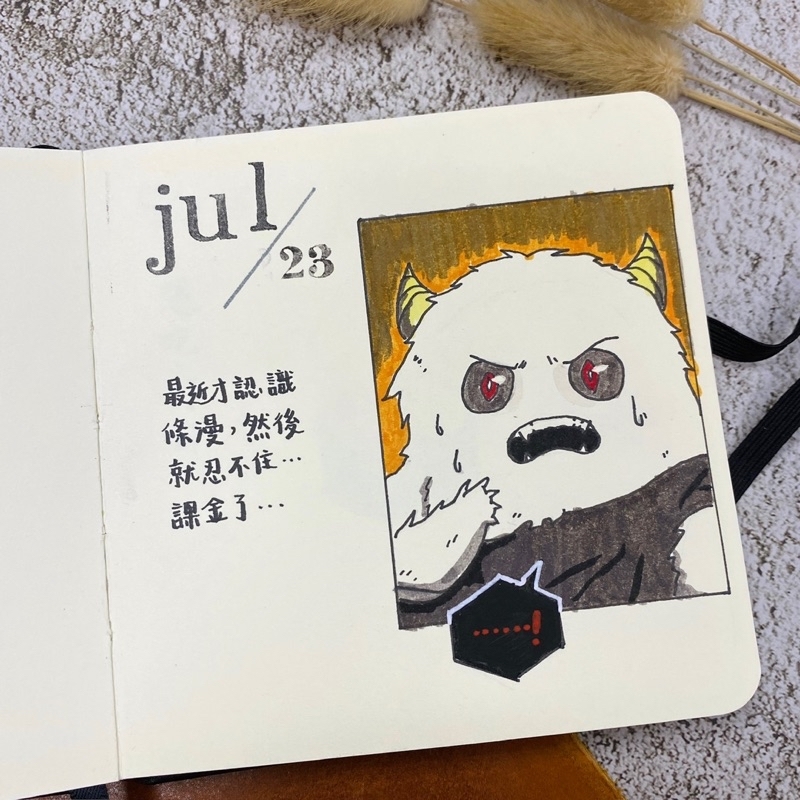 jul
23
最近才認識
條漫,然後
就忍不住…
課金了…
……!